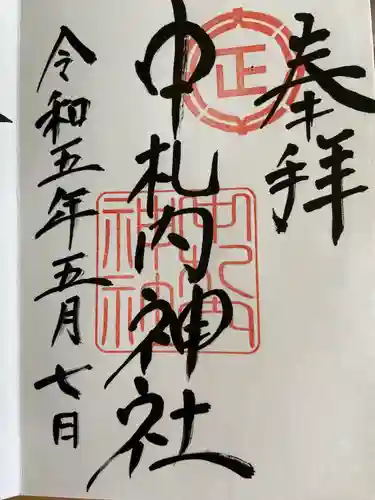 奉拝
中札内神社
令和五年五月七日
正